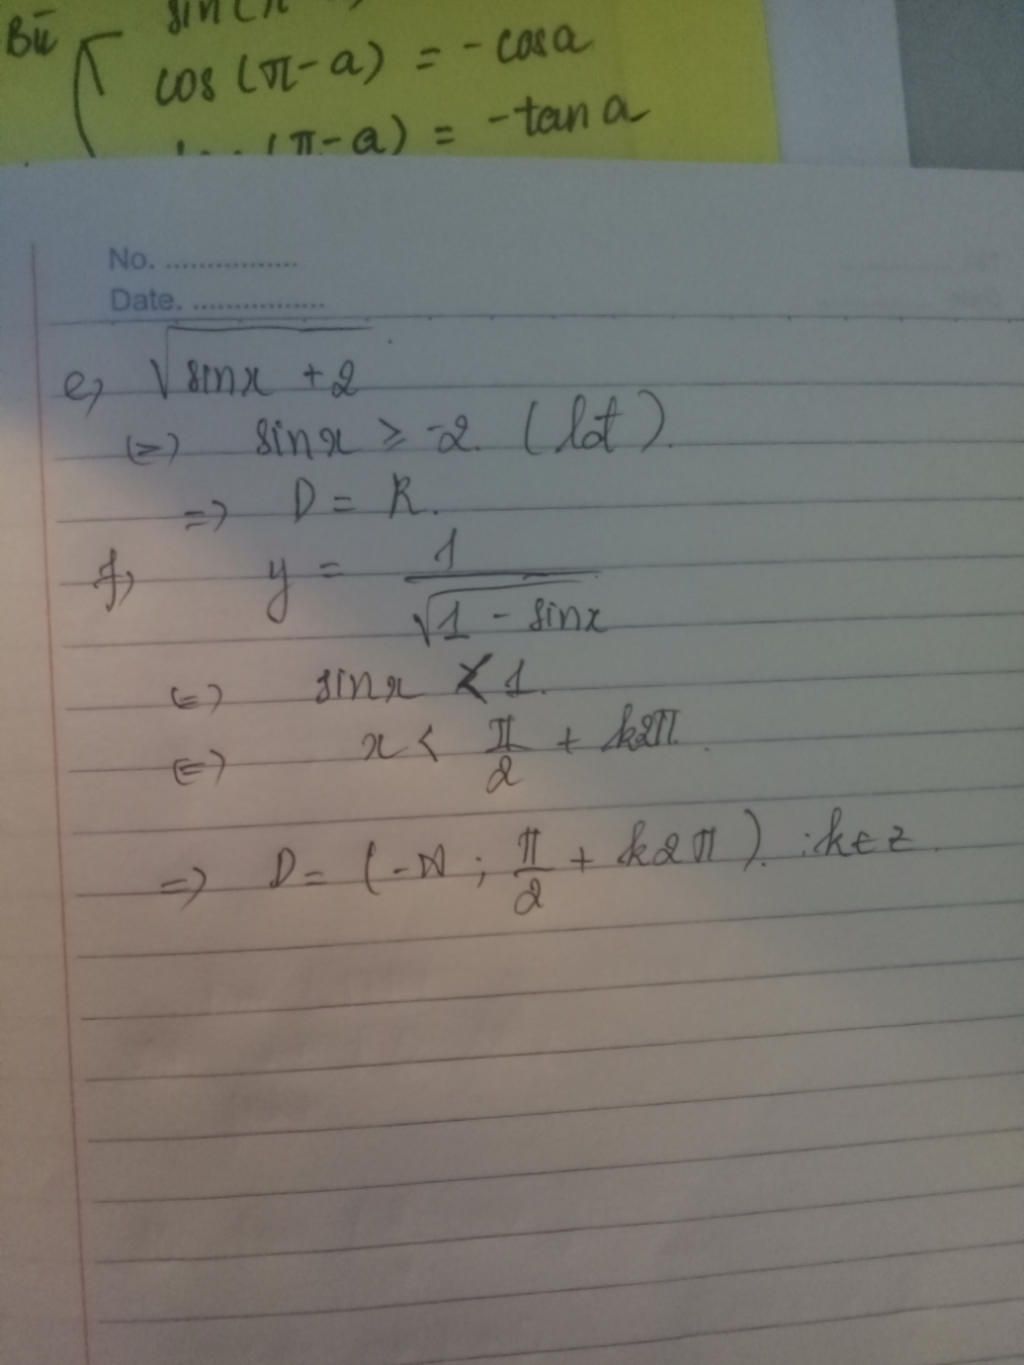 Bù
sin(π
cos (π-a) = -cosa
(π-a) = -tan a
No. ................
Date. ................
e, √sinx + 2
(=) sinx ≥ -2. (lđ).
=> D = R.
f, y = 1/√1 - sinx
(=) sinx < 1.
(=) x < π/2 + k2π.
=> D = (-∞ ; π/2 + k2π). : k ∈ z.